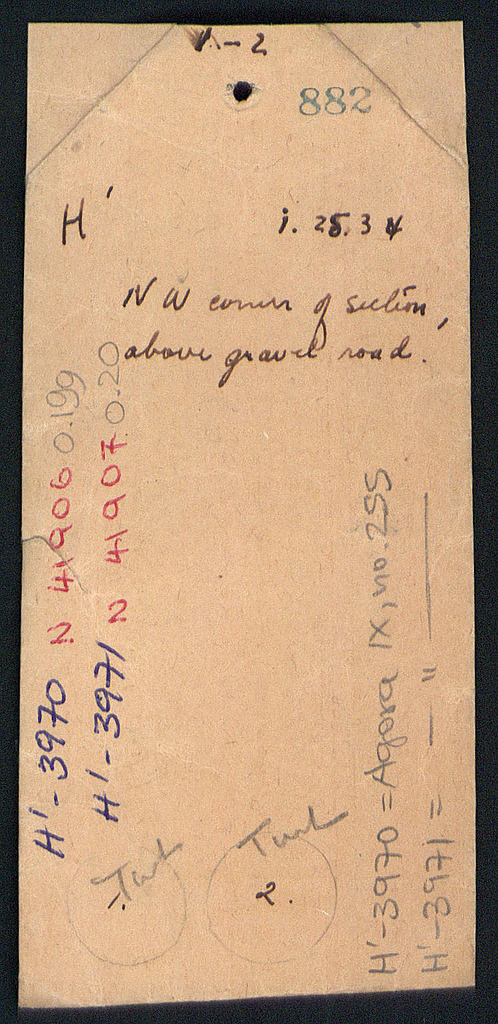 1-2
882
H'
i. 25.34
NW corner of section,
above gravel road.
H'-3970 N 41906 0.199
H'-3971 N 41907 0.20
1.
2.
H'-3970 = Agora IX, no. 255
H'-3971 = — " —